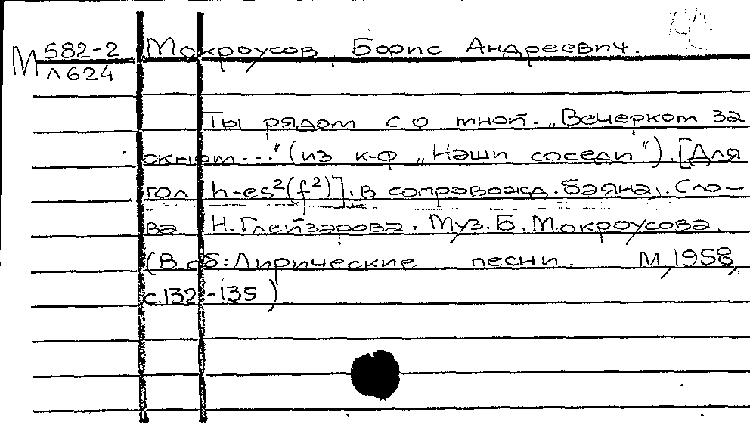 М 582-2 Мокроусов, Борис Андреевич.
Л624
Ты рядом со мной. „Вечерком за
окном..." (из к-ф „Наши соседи"). [Для
гол h-es²(f²)]. в сопровожд. баяна. Сло-
ва Н. Глейзарова. Муз. Б. Мокроусова.
(В сб: Лирические песни. М, 1958,
с.132-135)